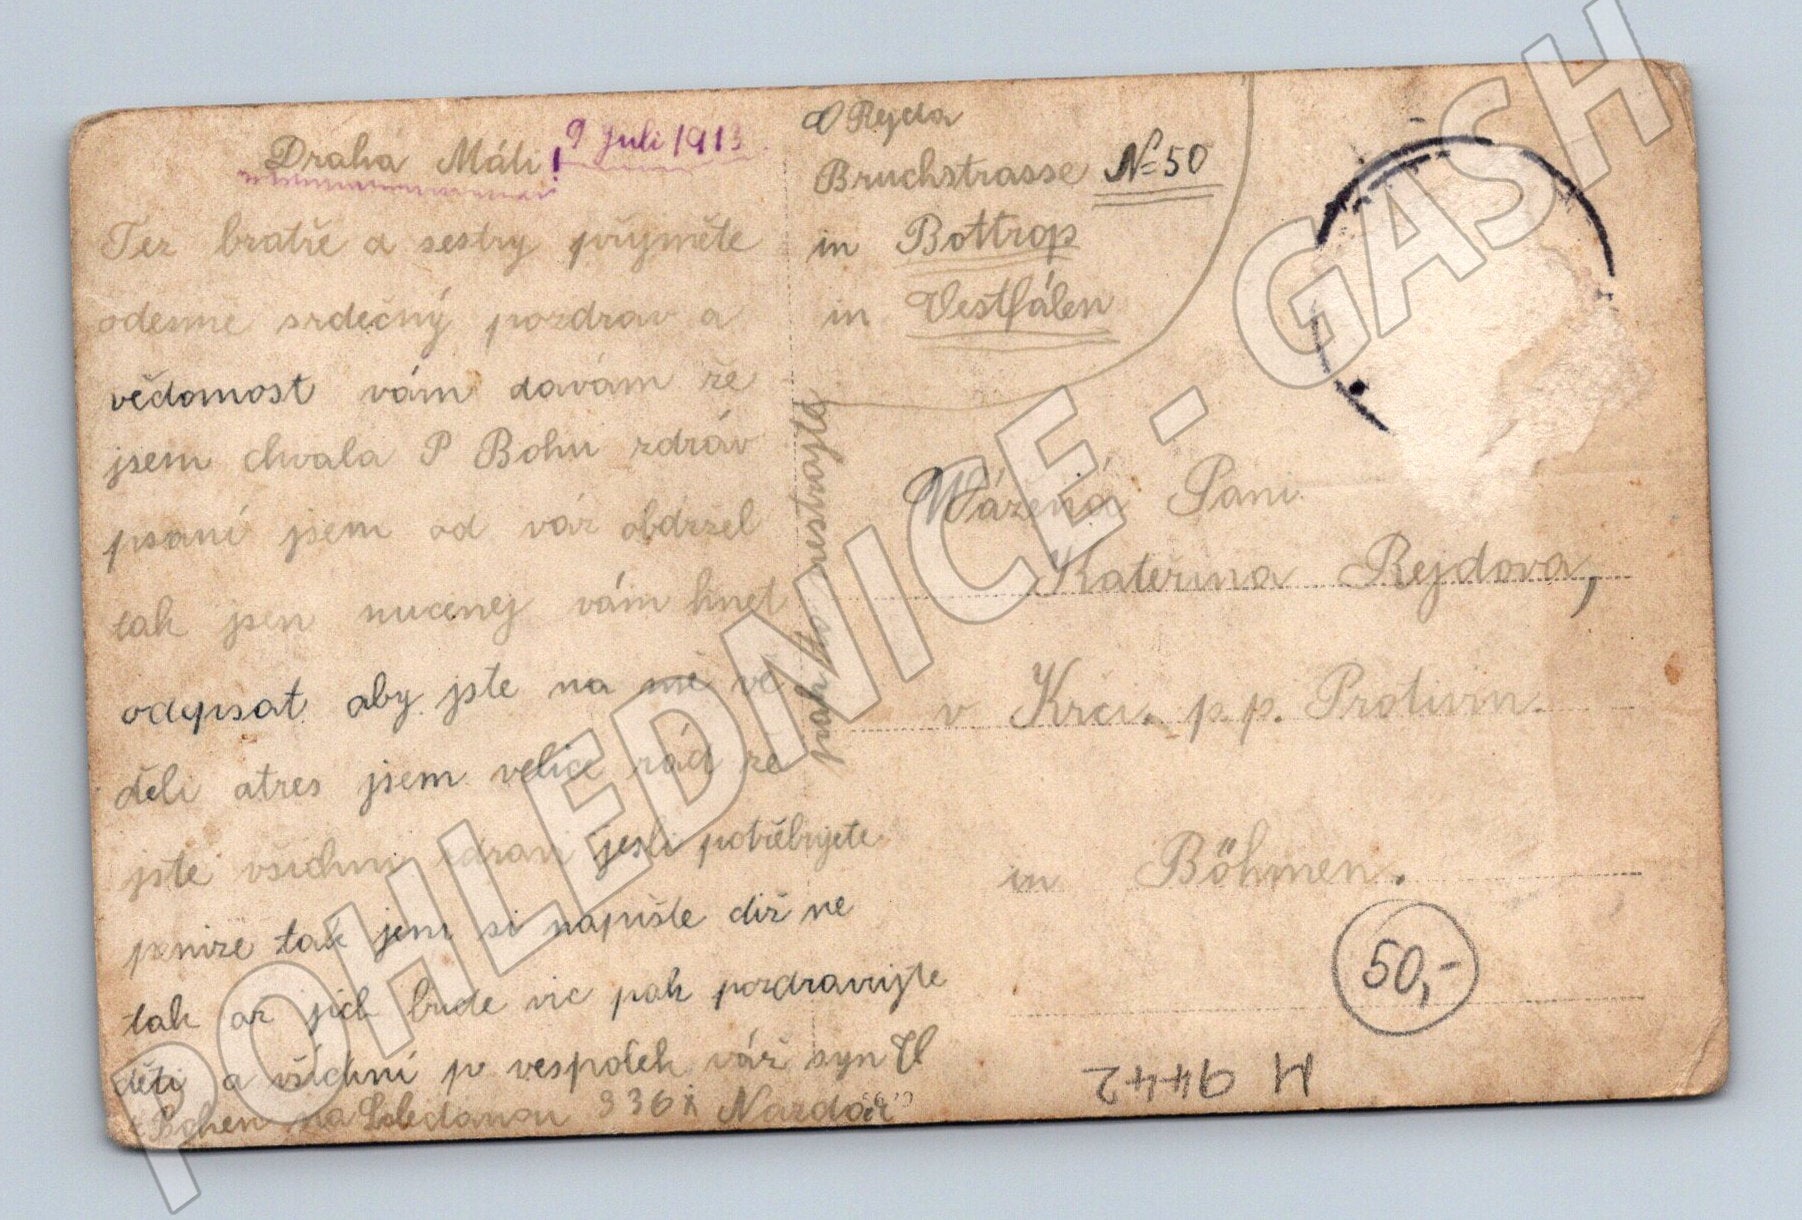 Drahá Máti!
9 Juli 1913.
Tez bratře a sestry přijměte
odemne srdečný pozdrav a
vědomost vám davám že
jsem chvala P Bohu zdráv
psani jsem od vaz obdrzel
tak jsen nucenej vám hnet
odepsat aby jste na mě vě
děli atres jsem velice rád ze
jste všichni zdrav jesli potřebujete
penize tak jem si napište diž ne
tak az jich bude vic pak pozdravujte
děti a všichni po vespolek váš syn
Bohem na 336 Nazdar
pak to nestrajte
Rejda
Bruchstrasse № 50
in Bottrop
in Vestfálen
Wážená Pani
Kateřina Rejdova,
v Krči. p.p. Protivin.
in Böhmen.
50,-
M 9442
POHLEDNICE - GASH